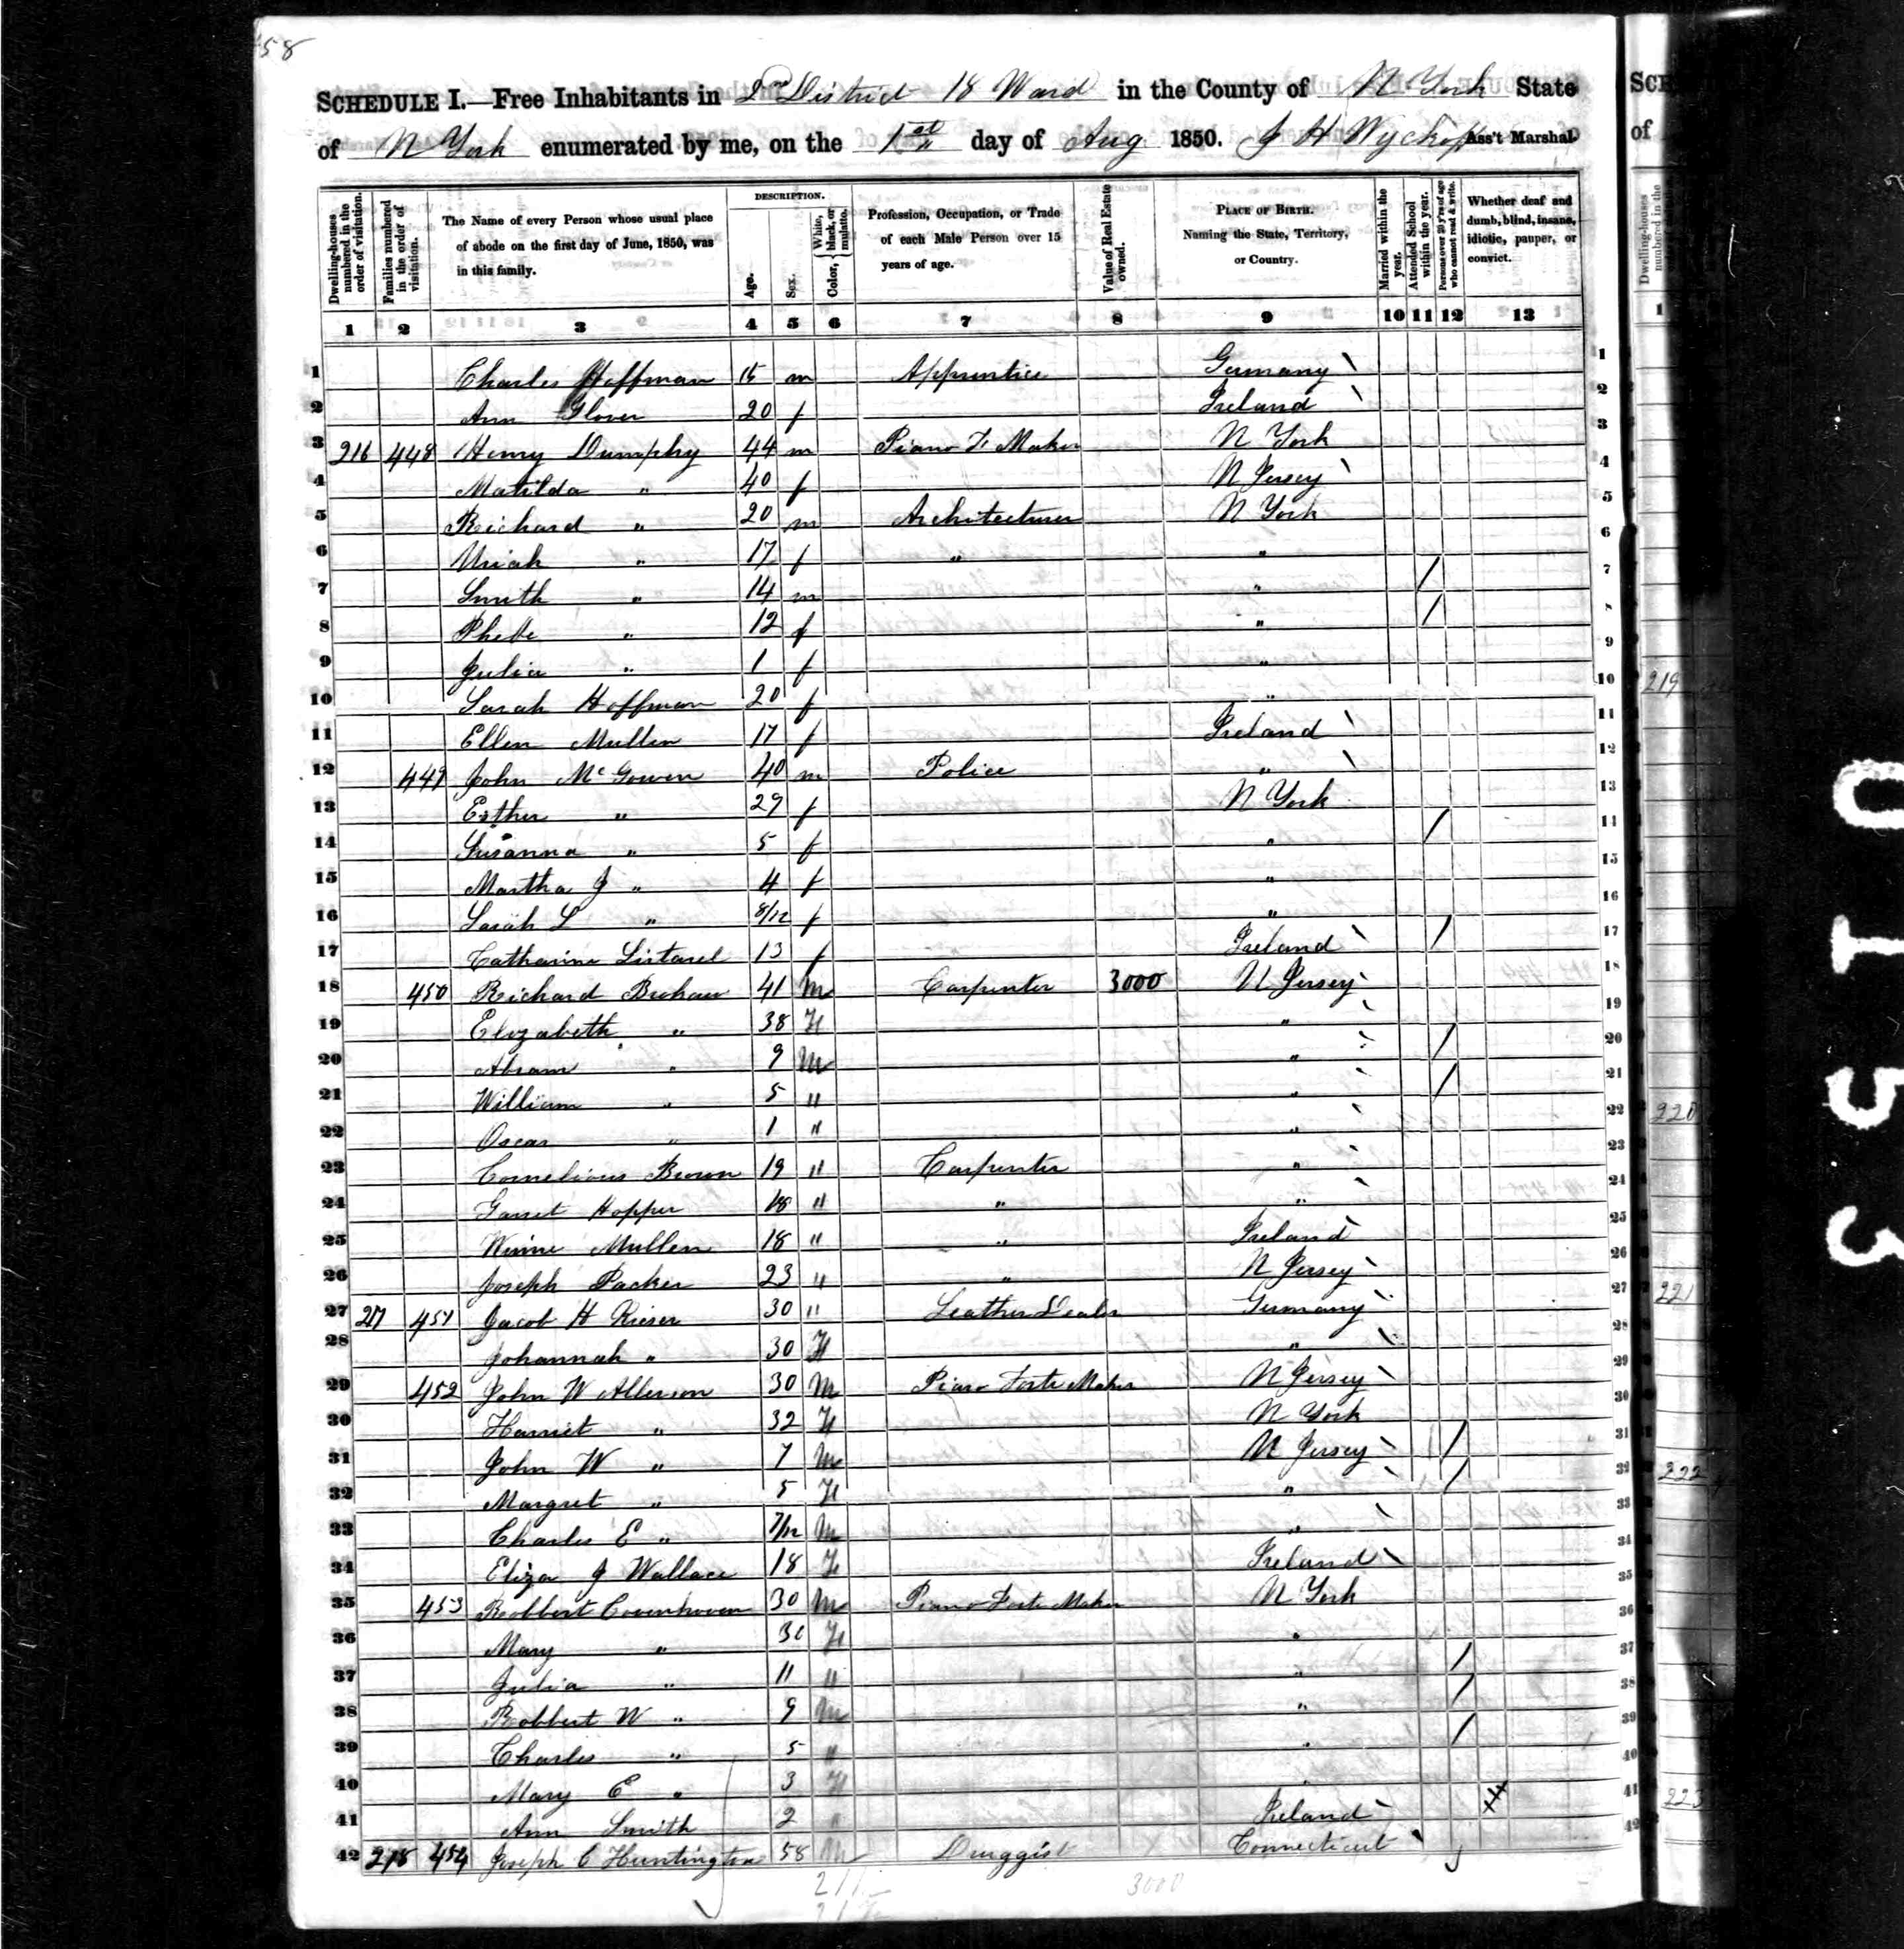 58
SCHEDULE I.—Free Inhabitants in 2nd District 18 Ward in the County of N York State
of N York enumerated by me, on the 1st day of Aug 1850. J H Wyckoff Ass't Marshal.
Dwelling-houses numbered in the order of visitation.
Families numbered in the order of visitation.
The Name of every Person whose usual place of abode on the first day of June, 1850, was in this family.
DESCRIPTION.
Age.
Sex.
Color, White, black, or mulatto.
Profession, Occupation, or Trade of each Male Person over 15 years of age.
Value of Real Estate owned.
PLACE OF BIRTH. Naming the State, Territory, or Country.
Married within the year.
Attended School within the year.
Persons over 20 y'rs of age who cannot read & write.
Whether deaf and dumb, blind, insane, idiotic, pauper, or convict.
1 2 3 4 5 6 7 8 9 10 11 12 13
1 Charles Hoffman 15 m Apprentice Germany 1
2 Ann Glover 20 f Ireland 2
3 216 448 Henry Dumphy 44 m Piano F Maker N York 3
4 Matilda " 40 f N Jersey 4
5 Richard " 20 m Architecturer N York 5
6 Uriah " 17 f " " 6
7 Smith " 14 m " / 7
8 Phebe " 12 f " / 8
9 Julia " 1 f " 9
10 Sarah Hoffman 20 f " 10
11 Ellen Mullin 17 f Ireland 11
12 449 John McGowen 40 m Police " 12
13 Esther " 29 f N York 13
14 Susanna " 5 f " / 14
15 Martha J " 4 f " 15
16 Sarah L " 8/12 f " 16
17 Catharine 13 f Ireland / 17
18 450 Richard Brokaw 41 M Carpenter 3000 N Jersey 18
19 Elizabeth " 38 F " 19
20 Abram " 9 M " / 20
21 William " 5 " " / 21
22 Oscar " 1 " " 22
23 Cornelious Brown 19 " Carpenter " 23
24 Garret Hopper 18 " " " 24
25 Winne Mullen 18 " " Ireland 25
26 Joseph Packer 23 " " N Jersey 26
27 217 451 Jacob H Rieser 30 " Leather Dealer Germany 27
28 Johannah " 30 F " 28
29 452 John W Allerson 30 M Piano Forte Maker N Jersey 29
30 Harriet " 32 F N York 30
31 John W " 7 M N Jersey / 31
32 Margret " 5 F " / 32
33 Charles E " 7/12 M " 33
34 Eliza J Wallace 18 F Ireland 34
35 453 Robbert Covenhoven 30 M Piano Forte Maker N York 35
36 Mary " 30 F " 36
37 Julia " 11 " " / 37
38 Robbert W " 9 M " / 38
39 Charles " 5 " " / 39
40 Mary E " 3 F " 40
41 Ann Smith 2 " Ireland 41
42 218 454 Joseph C Huntington 58 M Druggist Connecticut 42
3000
SCH
of
Dwelling-houses numbered in the
1
219
220
221
222
223
0153